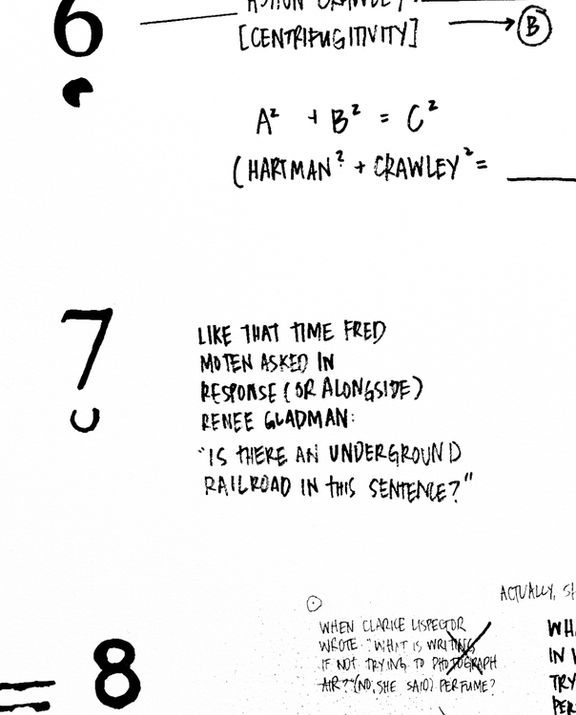 6
CRAWLEY
[CENTRIFUGITIVITY]
B
A² + B² = C²
(HARTMAN² + CRAWLEY² =
7
LIKE THAT TIME FRED
MOTEN ASKED IN
RESPONSE (OR ALONGSIDE)
RENEE GLADMAN:
"IS THERE AN UNDERGROUND
RAILROAD IN THIS SENTENCE?"
ACTUALLY, SH
8
WHEN CLARICE LISPECTOR
WROTE "WHAT IS WRITING
IF NOT TRYING TO PHOTOGRAPH
AIR?" (NO, SHE SAID) PERFUME?
WH
IN W
TRY
PER